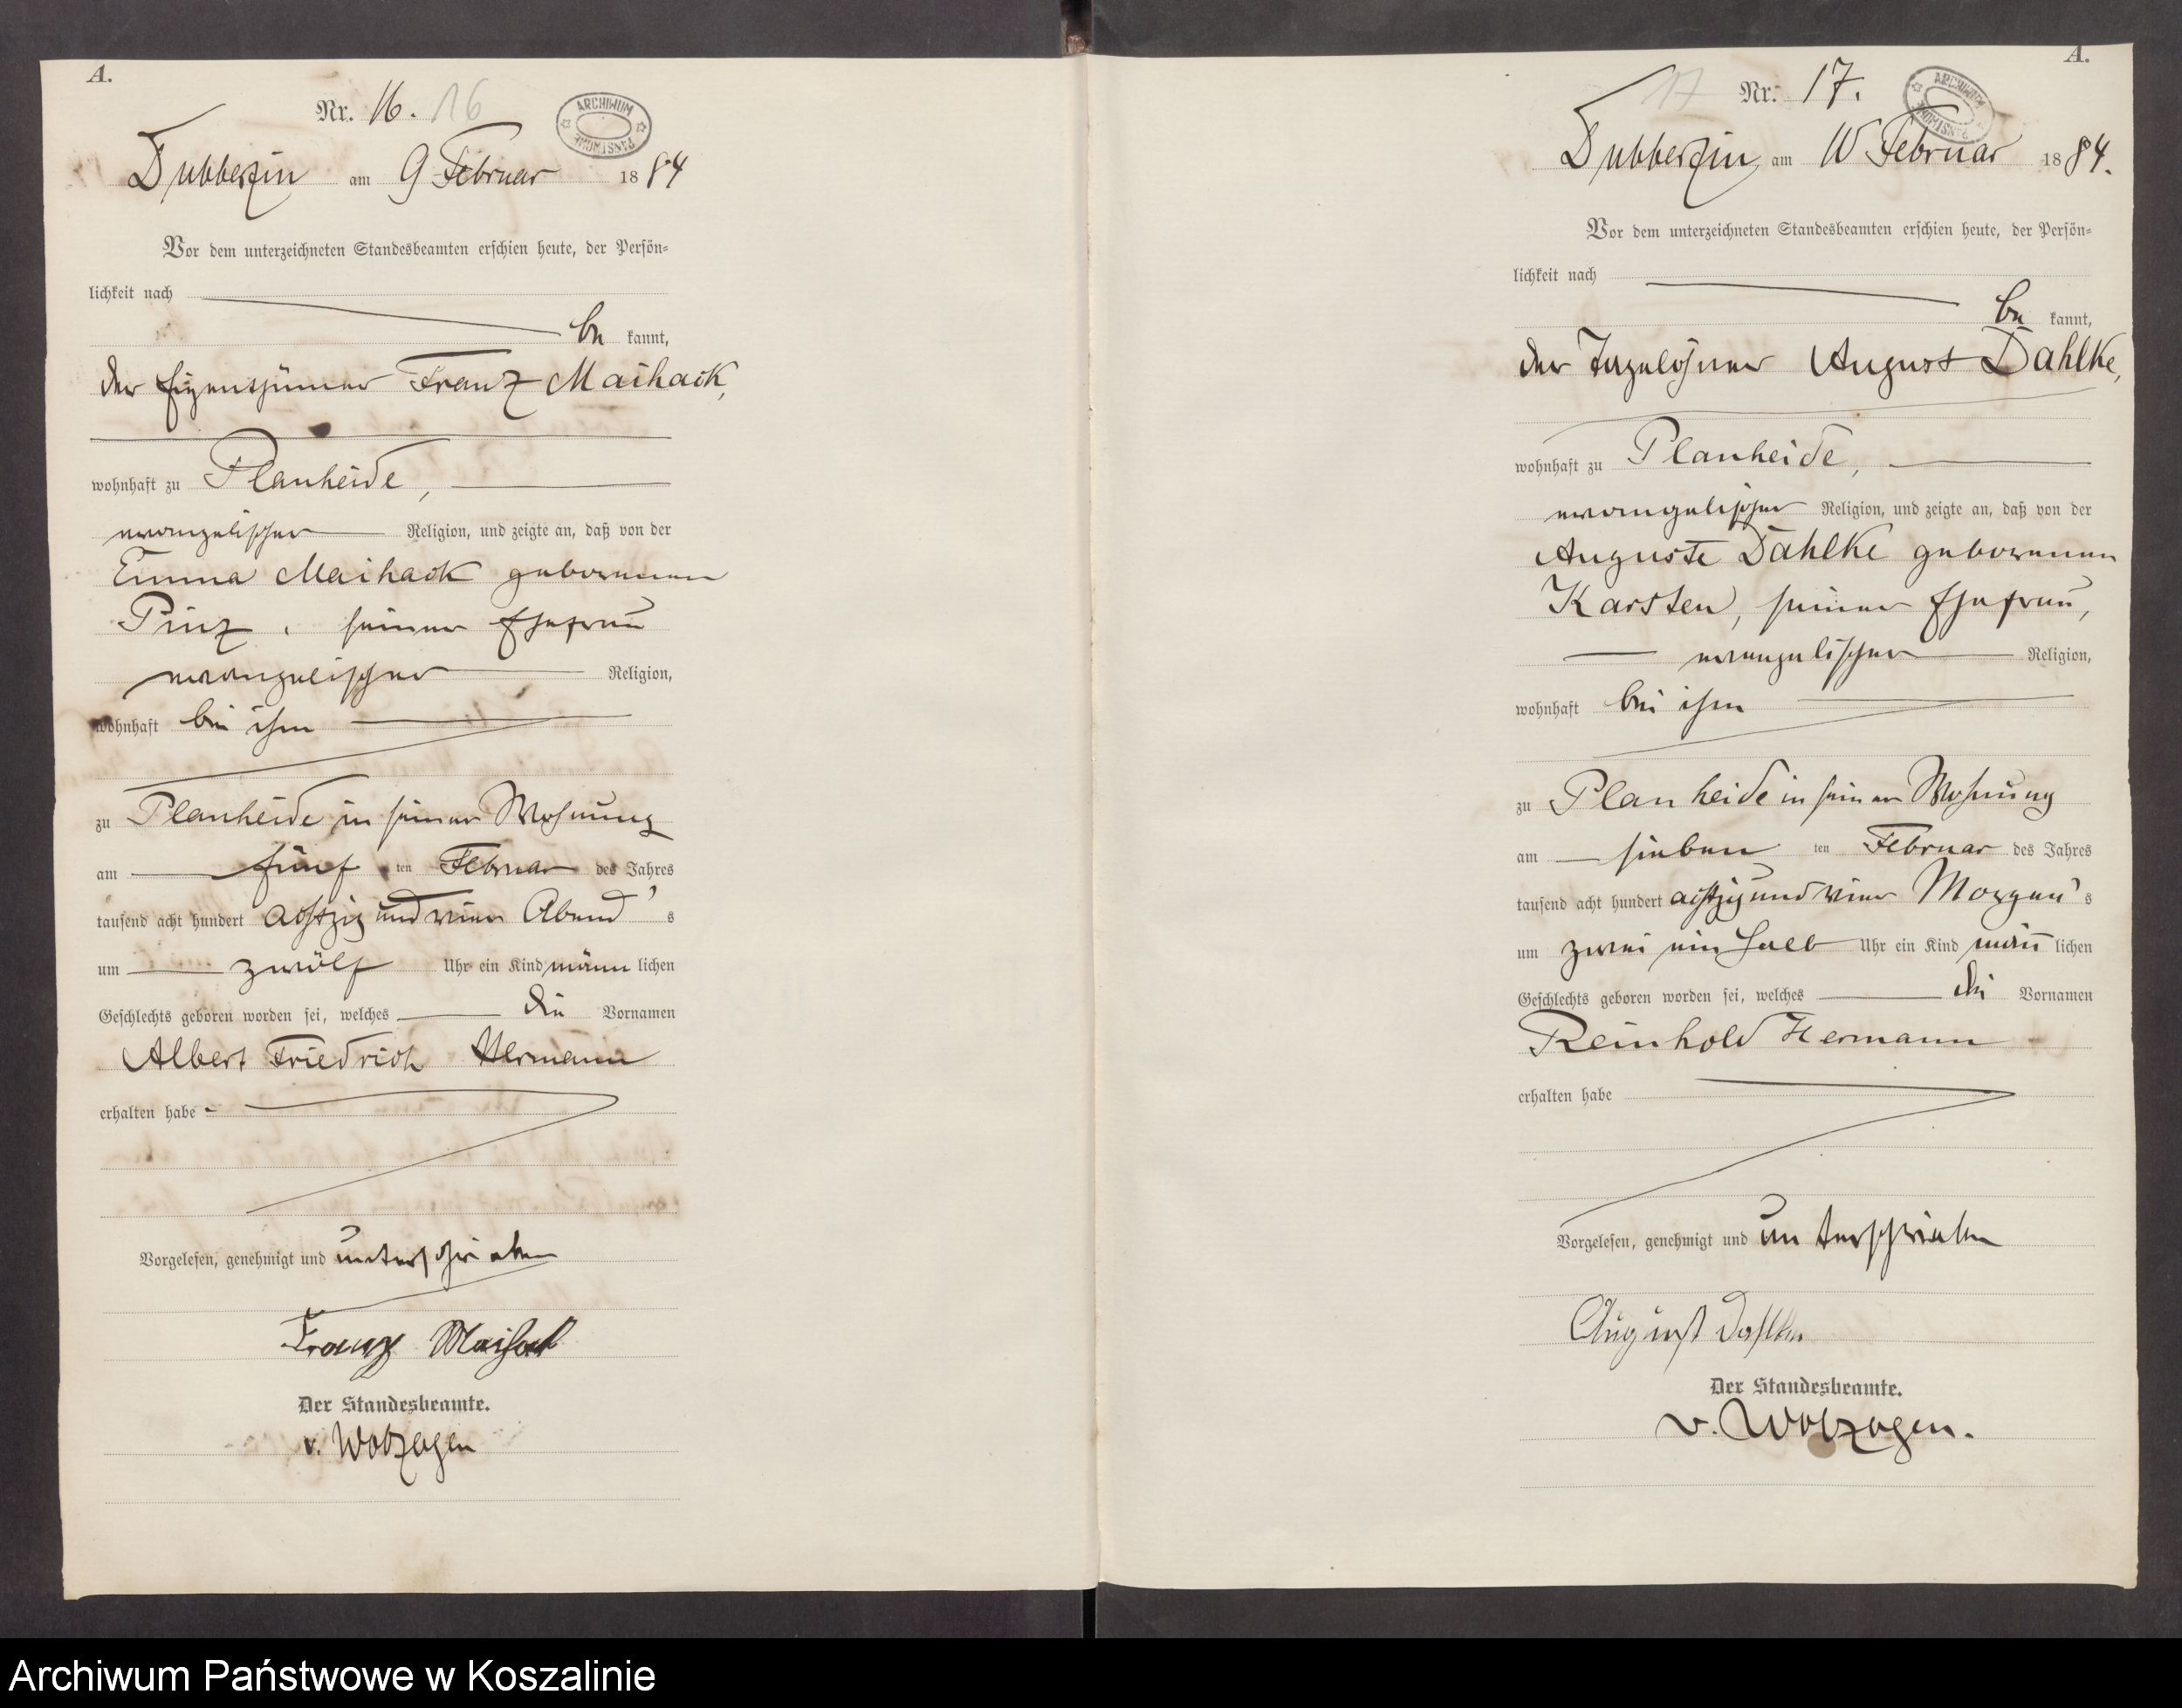 A.
Nr. 16. 16
ARCHIWUM PAŃSTWOWE
Dubberzin am 9 Februar 1884
Vor dem unterzeichneten Standesbeamten erschien heute, der Persön-
lichkeit nach
be kannt,
der Eigenthümer Franz Maihack,
wohnhaft zu Planheide,
evangelischer Religion, und zeigte an, daß von der
Emma Maihack geborenen
Pinz, seiner Ehefrau
evangelischer Religion,
wohnhaft bei ihm
zu Planheide in seiner Wohnung
am fünf ten Februar des Jahres
tausend acht hundert achtzig und vier Abend's
um zwölf Uhr ein Kind männ lichen
Geschlechts geboren worden sei, welches die Vornamen
Albert Friedrich Hermann
erhalten habe
Vorgelesen, genehmigt und unterschrieben
Franz Maihack
Der Standesbeamte.
v. Wolzogen
A.
17 Nr. 17.
ARCHIWUM PAŃSTWOWE
Dubberzin am 10 Februar 1884.
Vor dem unterzeichneten Standesbeamten erschien heute, der Persön-
lichkeit nach
be kannt,
der Tagelöhner August Dahlke,
wohnhaft zu Planheide,
evangelischer Religion, und zeigte an, daß von der
Auguste Dahlke geborenen
Karsten, seiner Ehefrau,
evangelischer Religion,
wohnhaft bei ihm
zu Planheide in seiner Wohnung
am sieben ten Februar des Jahres
tausend acht hundert achtzig und vier Morgen's
um zwei ein halb Uhr ein Kind män̄ lichen
Geschlechts geboren worden sei, welches die Vornamen
Reinhold Hermann
erhalten habe
Vorgelesen, genehmigt und unterschrieben
August Dahlke
Der Standesbeamte.
v. Wolzogen.
Archiwum Państwowe w Koszalinie